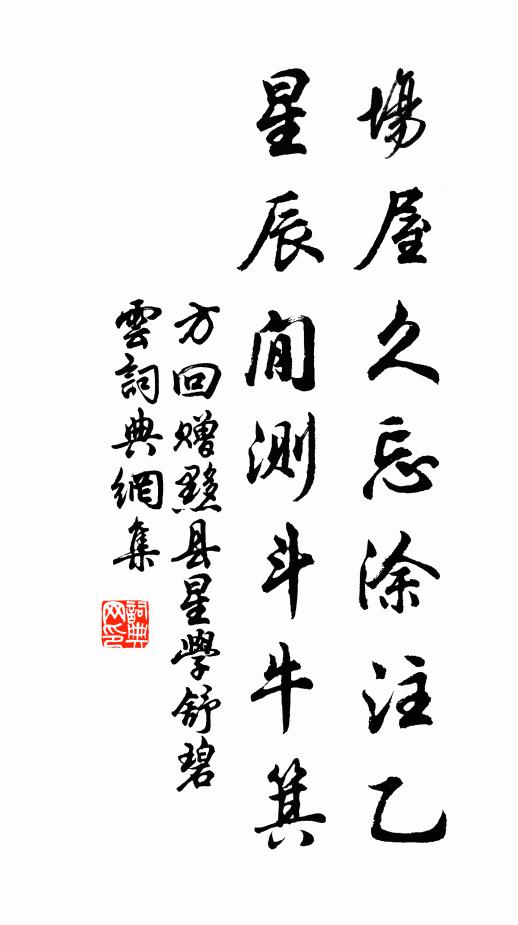 場屋久忘涂注乙
星辰閒測斗牛箕
方回赠黟县星學舒碧
雲詞典網集
詞典网印